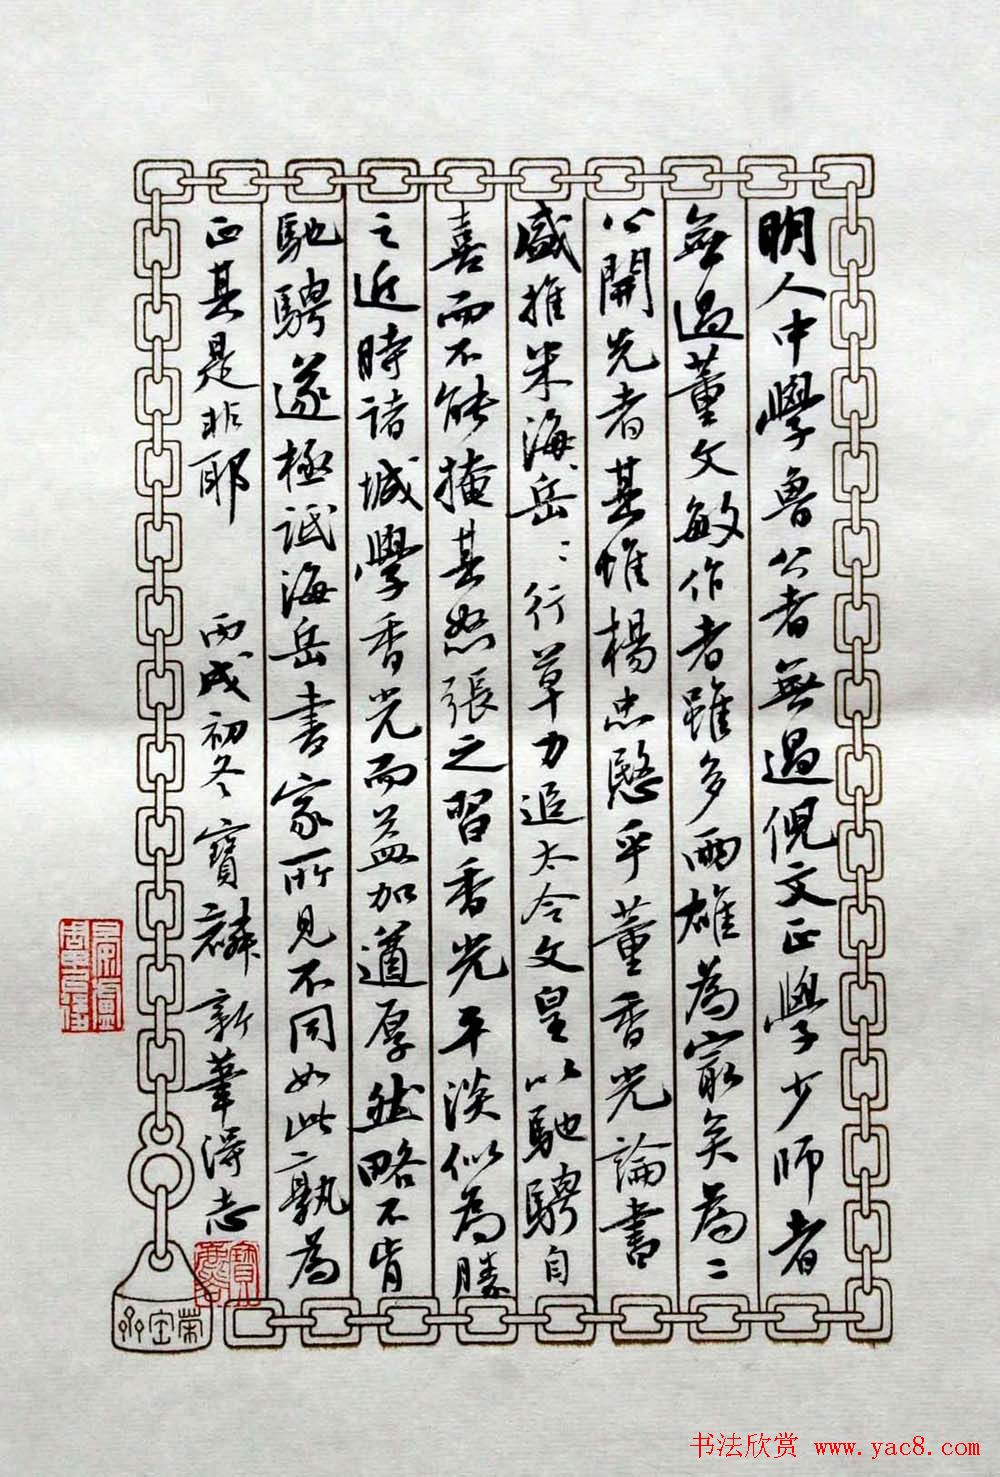 明人中學魯公者無過倪文正學少師者
無過董文敏作者雖多兩雄為最矣為二
公開先者其惟楊忠愍乎董香光論書
盛推米海岳〻行草力追大令文皇以馳騁自
喜而不能掩其怒張之習香光平淡似為勝
之近時諸城學香光而益加遒厚然略不肯
馳騁遂極詆海岳書家所見不同如此孰為
正其是非耶 丙戌初冬寶麟新華漫志
寶
榮宝
书法欣赏 www.yac8.com